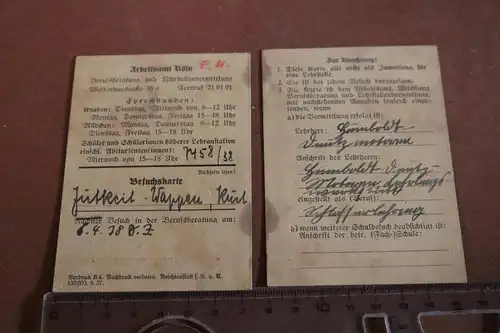 Arbeitsamt Köln
Berufsberatung und Lehrstellenvermittlung
Fernruf 21 01 01
Sprechstunden:
Knaben: Dienstag, Mittwoch von 9—12 Uhr
Montag, Donnerstag, Freitag 15—18 Uhr
Mädchen: Montag, Donnerstag 9—12 Uhr
Dienstag, Freitag 15—18 Uhr
Schüler und Schülerinnen höherer Lehranstalten
einschl. Abiturienten(innen):
Mittwoch von 15—18 Uhr
7458/38
Rückseite lesen!
Besuchskarte
Kurt
Nächster Besuch in der Berufsberatung am:
6. 4. 38
Vordruck B 4. Nachdruck verboten. Reichsanstalt f. A. u. A.
9. 37.
Zur Beachtung!
1. Diese Karte gilt nicht als Zuweisung für
eine Lehrstelle.
2. Sie ist bei jedem Besuch vorzulegen.
3. Die Karte ist dem Arbeitsamt, Abteilung
Berufsberatung und Lehrstellenvermittlung,
mit nachstehenden Angaben zurück einzu-
senden, wenn
a) die Vermittlung erfolgt ist:
Lehrherr: Humboldt
Deutz motoren
Anschrift des Lehrherrn:
Humboldt Deutz-
Motoren
eingestellt als (Beruf):
b) wenn weiterer Schulbesuch beabsichtigt ist:
Anschrift der (Fach-) Schule: